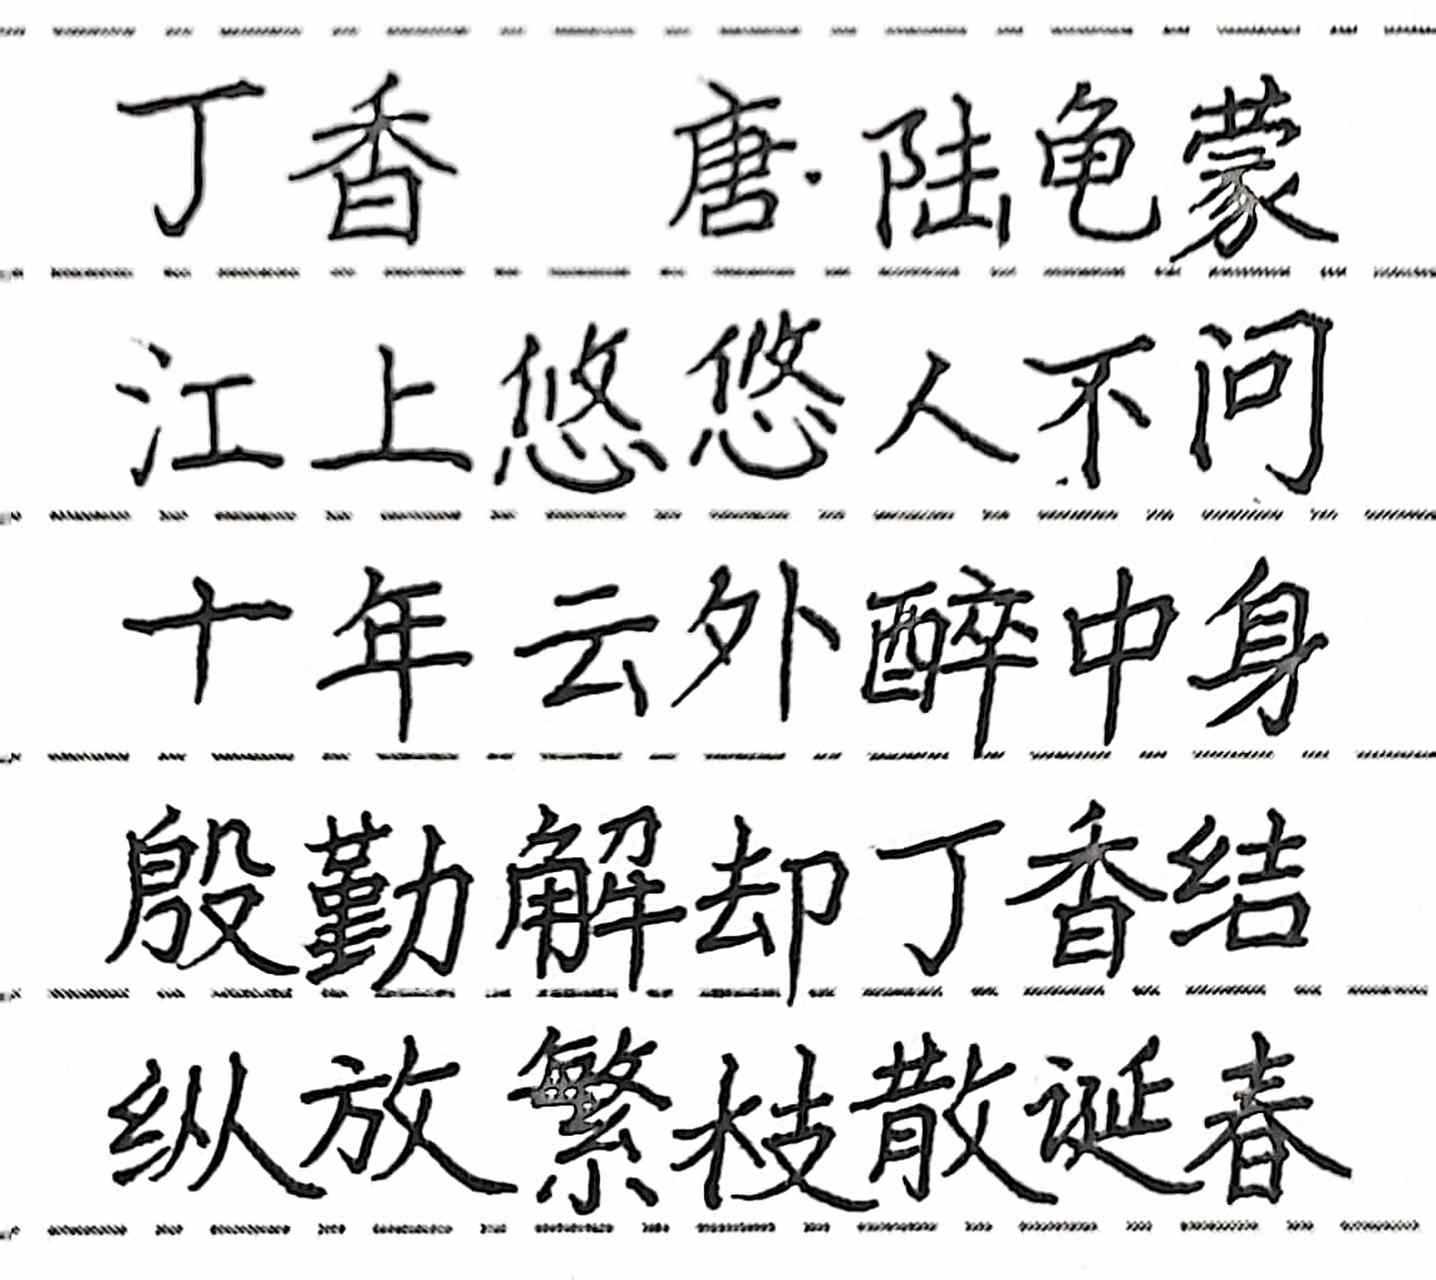 丁香 唐·陆龟蒙
江上悠悠人不问
十年云外醉中身
殷勤解却丁香结
纵放繁枝散诞春